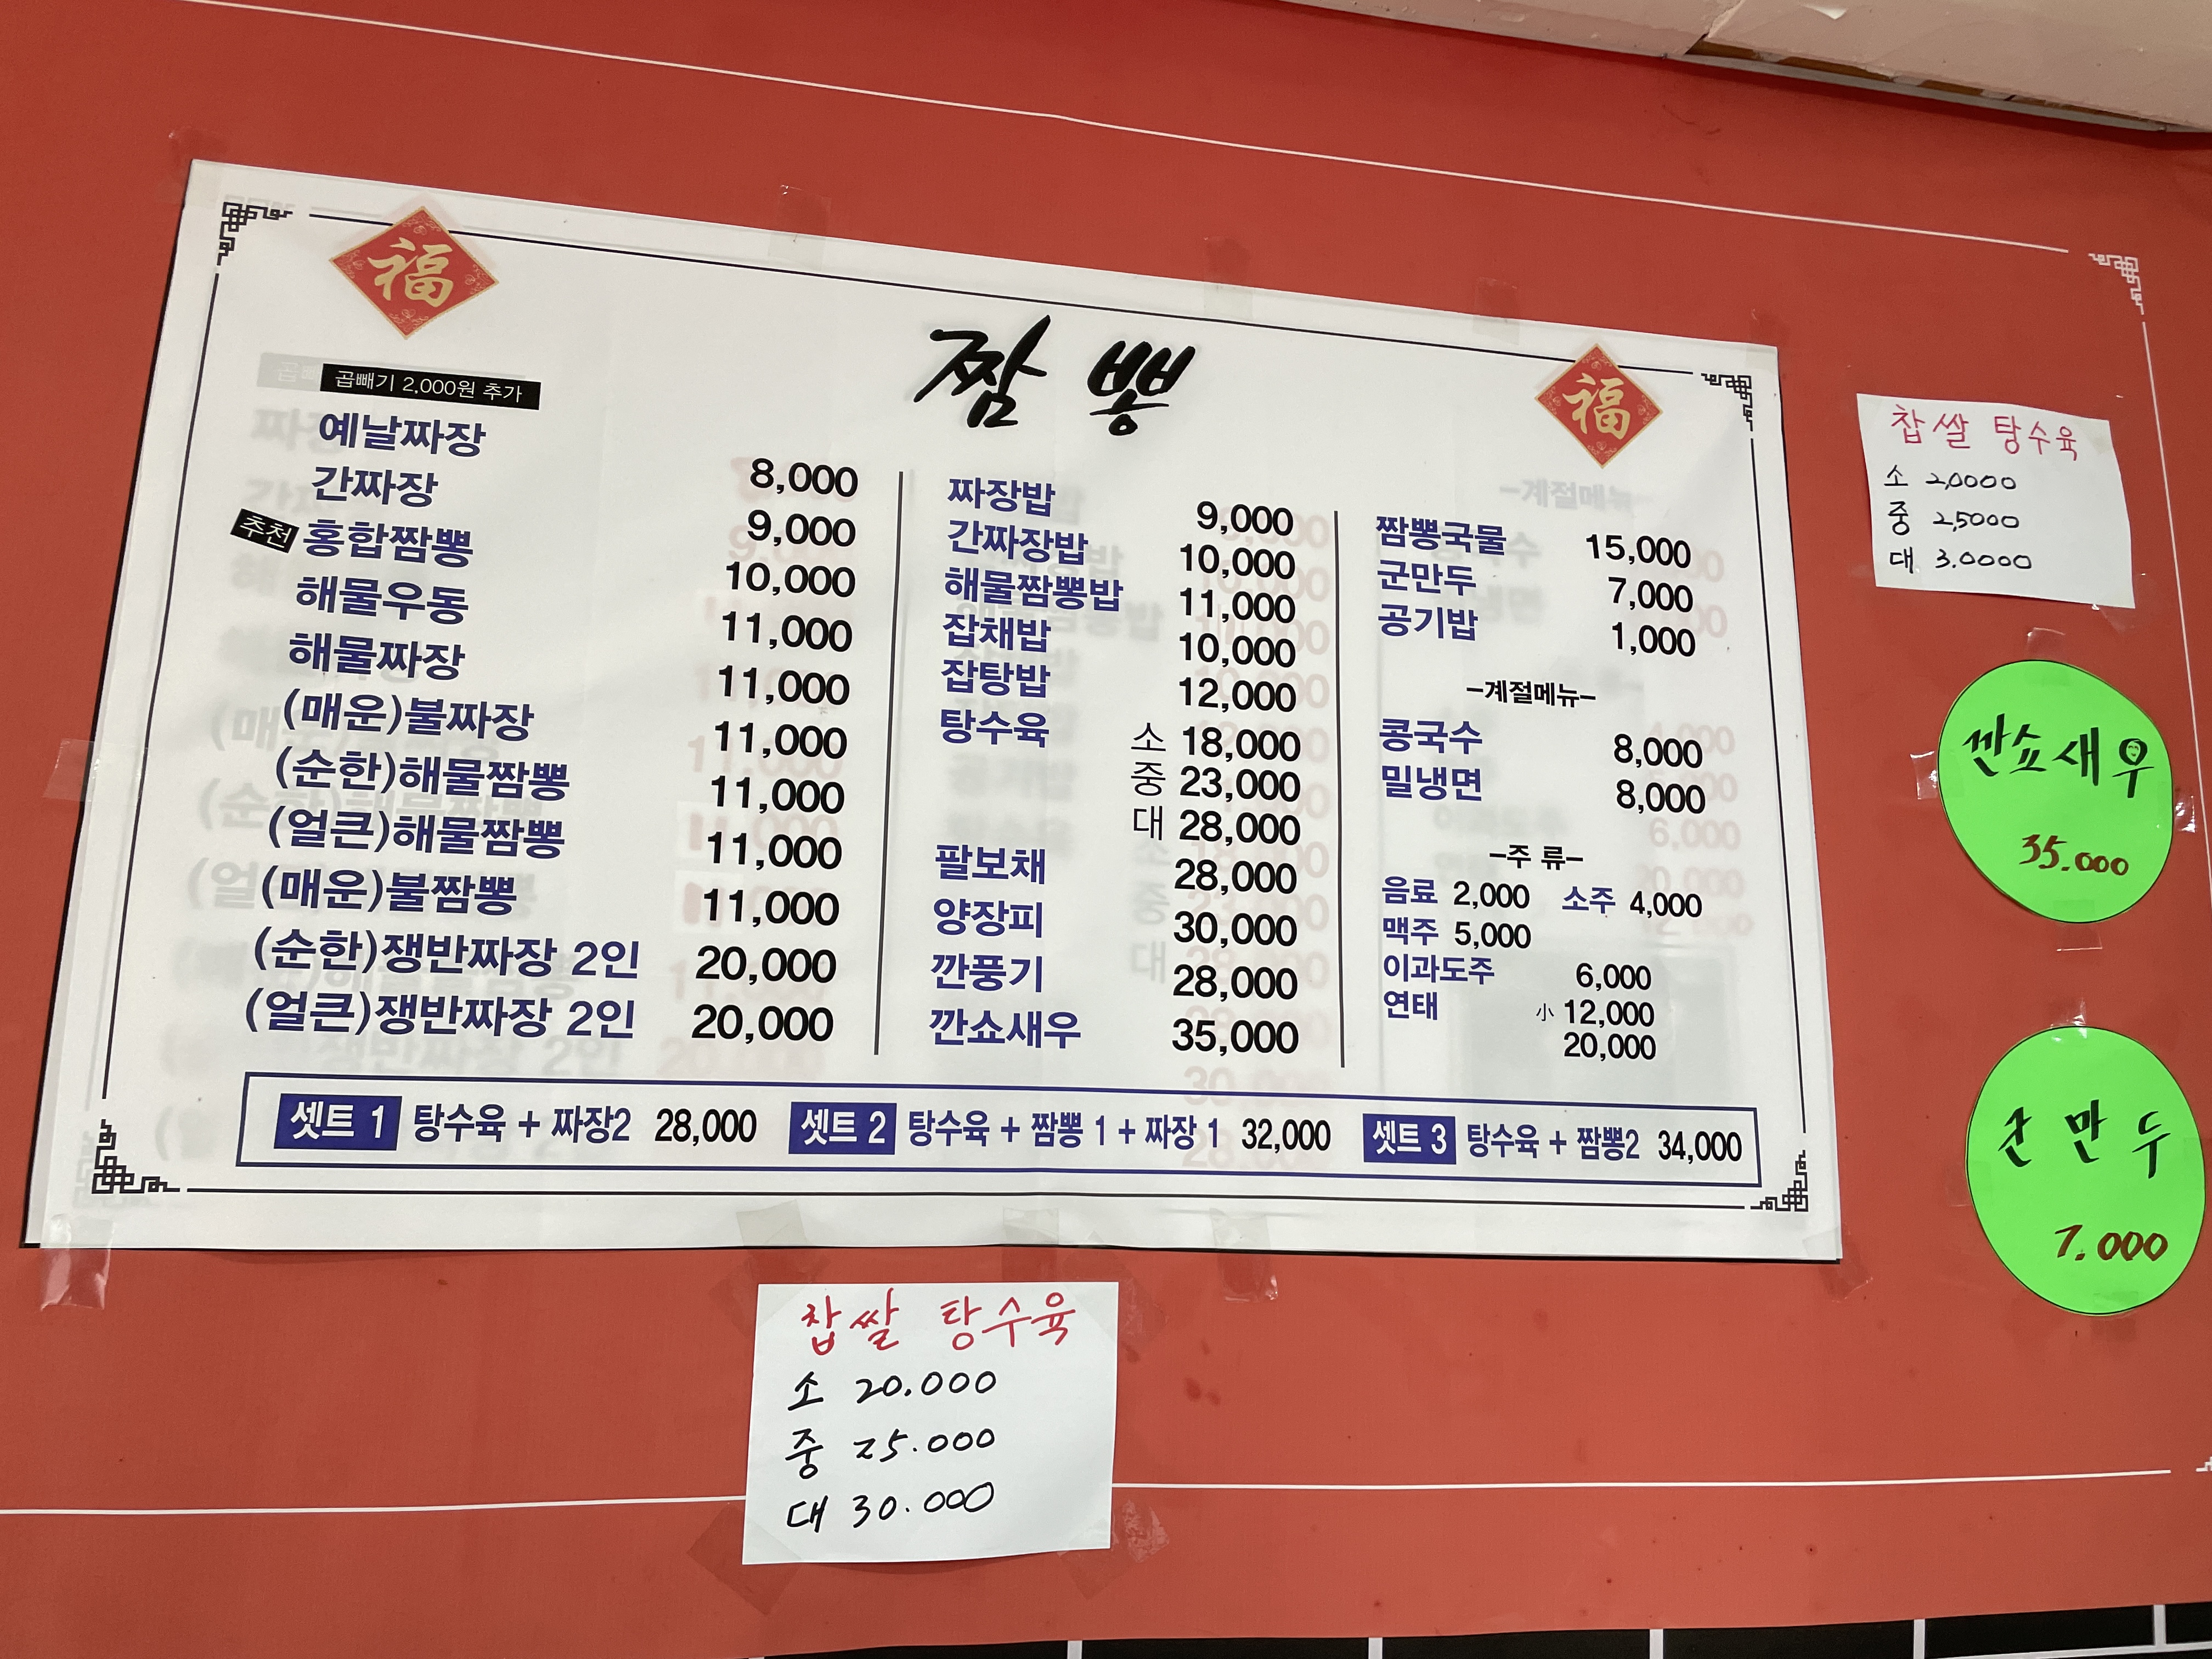 福
福
짬뽕
곱빼기 2,000원 추가
예날짜장 8,000
간짜장 9,000
추천 홍합짬뽕 10,000
해물우동 11,000
해물짜장 11,000
(매운)불짜장 11,000
(순한)해물짬뽕 11,000
(얼큰)해물짬뽕 11,000
(매운)불짬뽕 11,000
(순한)쟁반짜장 2인 20,000
(얼큰)쟁반짜장 2인 20,000
짜장밥 9,000
간짜장밥 10,000
해물짬뽕밥 11,000
잡채밥 10,000
잡탕밥 12,000
탕수육 소 18,000
중 23,000
대 28,000
팔보채 28,000
양장피 30,000
깐풍기 28,000
깐쇼새우 35,000
짬뽕국물 15,000
군만두 7,000
공기밥 1,000
-계절메뉴-
콩국수 8,000
밀냉면 8,000
-주 류-
음료 2,000 소주 4,000
맥주 5,000
이과도주 6,000
연태 小 12,000
20,000
셋트 1 탕수육 + 짜장2 28,000
셋트 2 탕수육 + 짬뽕 1 + 짜장 1 32,000
셋트 3 탕수육 + 짬뽕2 34,000
찹쌀 탕수육
소 2,0000
중 2,5000
대 3.0000
깐쇼새우
35.000
군만두
7.000
찹쌀 탕수육
소 20.000
중 25.000
대 30.000